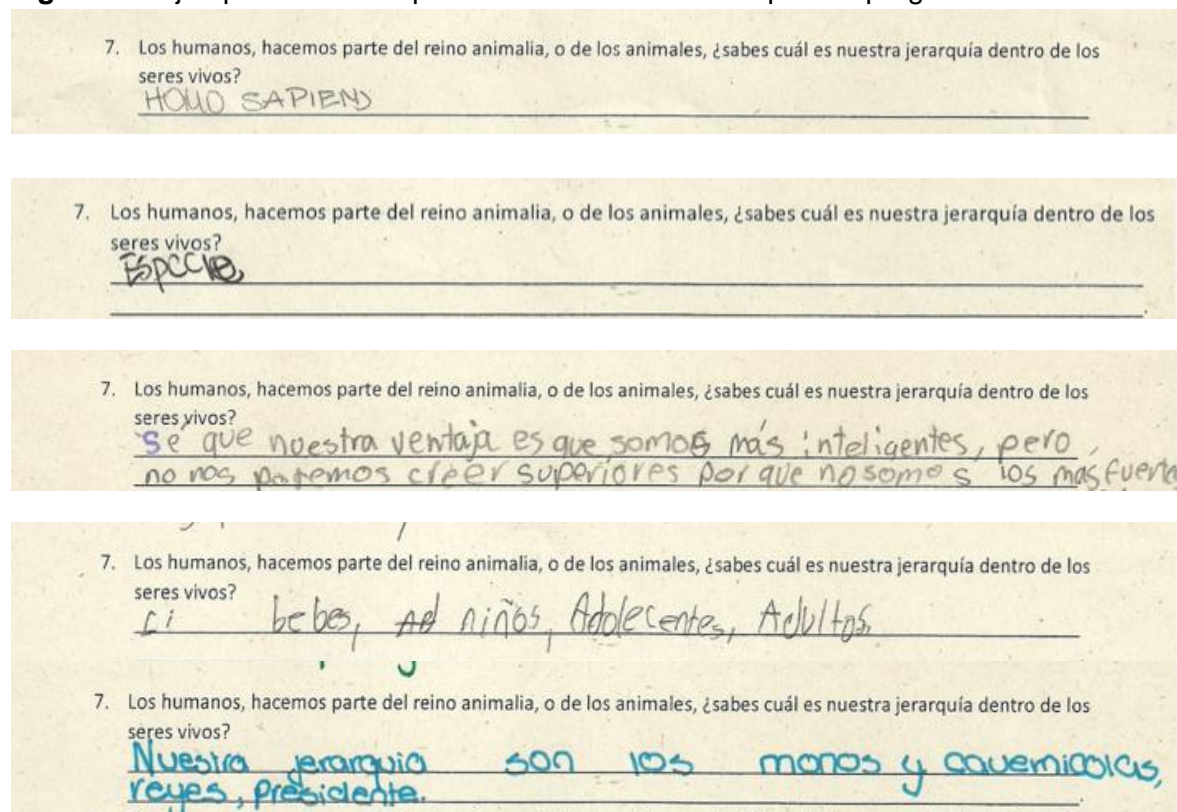 7. Los humanos, hacemos parte del reino animalia, o de los animales, ¿sabes cuál es nuestra jerarquía dentro de los
seres vivos?
HOMO SAPIENS
7. Los humanos, hacemos parte del reino animalia, o de los animales, ¿sabes cuál es nuestra jerarquía dentro de los
seres vivos?
Especie
7. Los humanos, hacemos parte del reino animalia, o de los animales, ¿sabes cuál es nuestra jerarquía dentro de los
seres vivos?
Sé que nuestra ventaja es que somos más inteligentes, pero
no nos podemos creer superiores por que no somos los mas fuerte
7. Los humanos, hacemos parte del reino animalia, o de los animales, ¿sabes cuál es nuestra jerarquía dentro de los
seres vivos?
ci bebes, niños, Adolecentes, Adultos,
7. Los humanos, hacemos parte del reino animalia, o de los animales, ¿sabes cuál es nuestra jerarquía dentro de los
seres vivos?
Nuestra jerarquia son los monos y cavernicolas,
reyes, presidente.